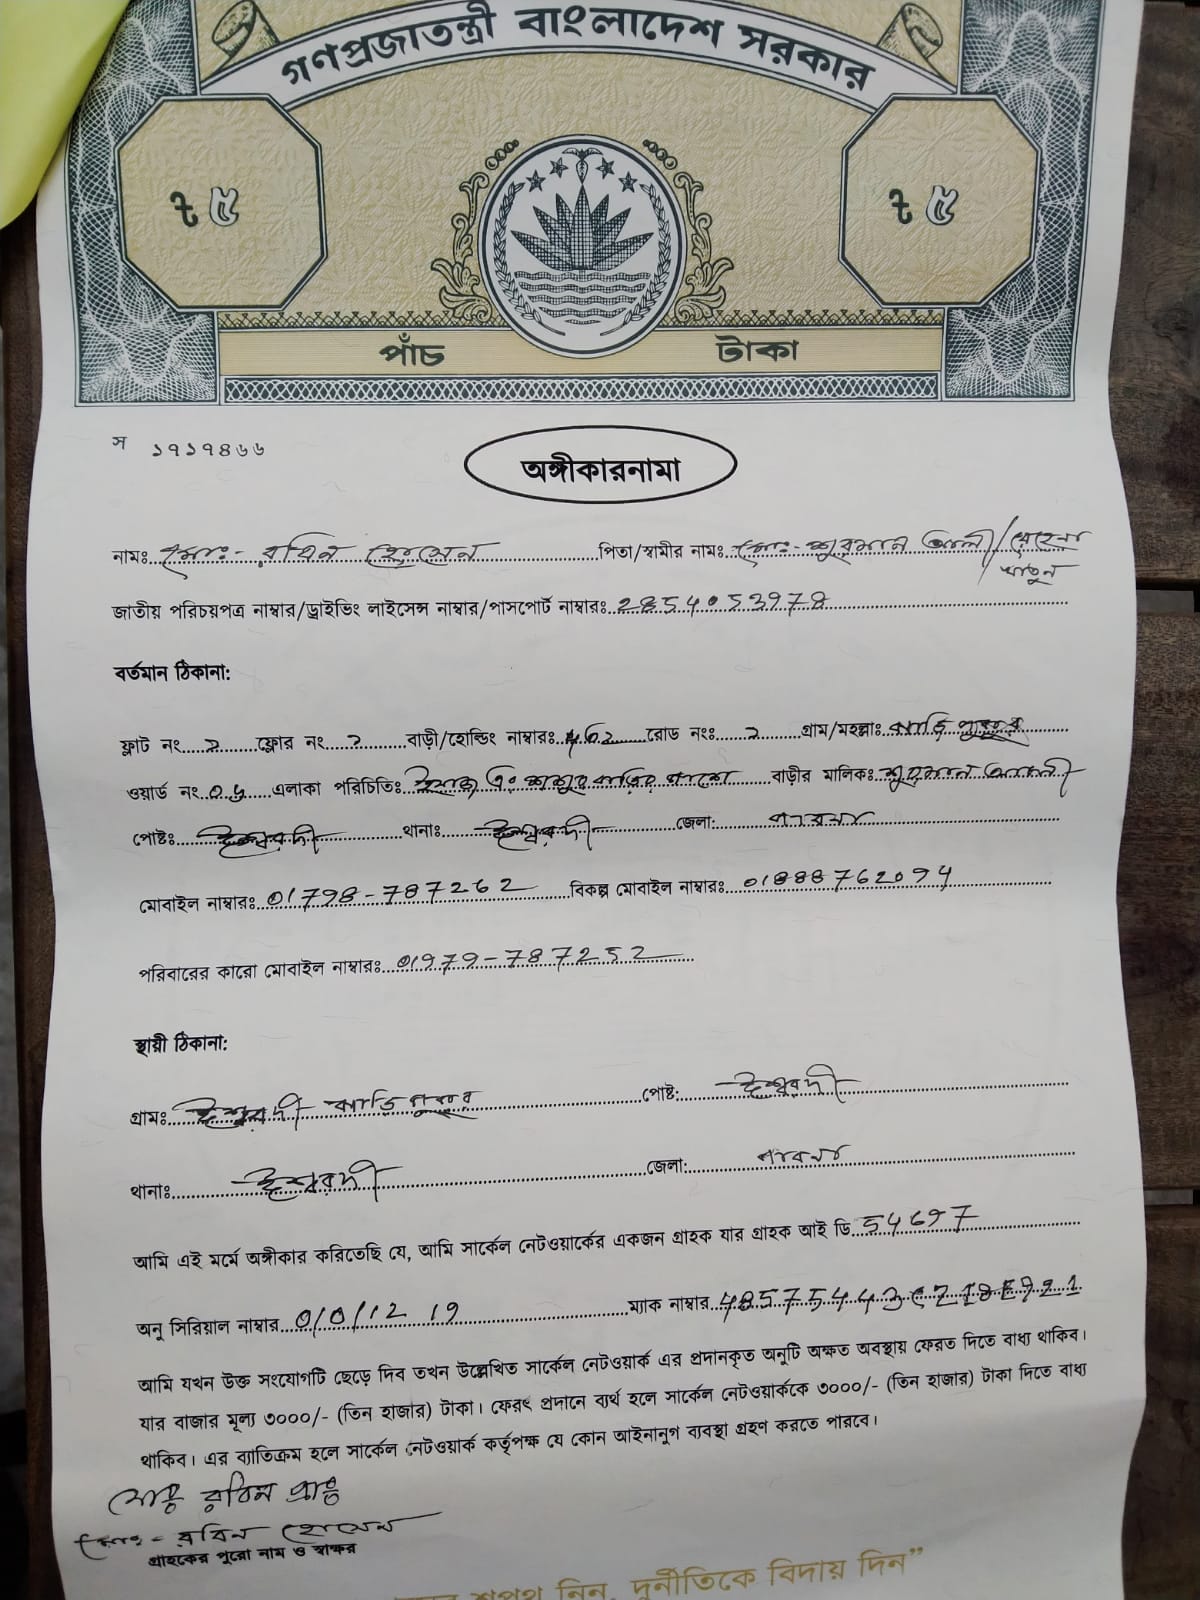 গণপ্রজাতন্ত্রী বাংলাদেশ সরকার
৳ ৫ ৳ ৫
পাঁচ টাকা
স ১৭১৭৪৬৬
অঙ্গীকারনামা
নামঃ মোঃ- রবিন হোসেন পিতা/স্বামীর নামঃ মোঃ- আলী/
খাতুন
জাতীয় পরিচয়পত্র নাম্বার/ড্রাইভিং লাইসেন্স নাম্বার/পাসপোর্ট নাম্বারঃ 2854053978
বর্তমান ঠিকানা:
ফ্লাট নং ফ্লোর নং বাড়ী/হোল্ডিং নাম্বারঃ রোড নংঃ গ্রাম/মহল্লাঃ
ওয়ার্ড নং এলাকা পরিচিতিঃ বাড়ির পাশে বাড়ীর মালিকঃ
পোষ্টঃ ঈশ্বরদী থানাঃ ঈশ্বরদী জেলা: পাবনা
মোবাইল নাম্বারঃ 01798-787262 বিকল্প মোবাইল নাম্বারঃ
পরিবারের কারো মোবাইল নাম্বারঃ 01979-787252
স্থায়ী ঠিকানা:
গ্রামঃ ঈশ্বরদী পোষ্ট: ঈশ্বরদী
থানাঃ ঈশ্বরদী জেলা: পাবনা
আমি এই মর্মে অঙ্গীকার করিতেছি যে, আমি সার্কেল নেটওয়ার্কের একজন গ্রাহক যার গ্রাহক আই ডি 54697
অনু সিরিয়াল নাম্বার ম্যাক নাম্বার
আমি যখন উক্ত সংযোগটি ছেড়ে দিব তখন উল্লেখিত সার্কেল নেটওয়ার্ক এর প্রদানকৃত অনুটি অক্ষত অবস্থায় ফেরত দিতে বাধ্য থাকিব।
যার বাজার মূল্য ৩০০০/- (তিন হাজার) টাকা। ফেরৎ প্রদানে ব্যর্থ হলে সার্কেল নেটওয়ার্ককে ৩০০০/- (তিন হাজার) টাকা দিতে বাধ্য
থাকিব। এর ব্যাতিক্রম হলে সার্কেল নেটওয়ার্ক কর্তৃপক্ষ যে কোন আইনানুগ ব্যবস্থা গ্রহণ করতে পারবে।
রবিন
মোঃ- রবিন হোসেন
গ্রাহকের পুরো নাম ও স্বাক্ষর
শপথ নিন, দুর্নীতিকে বিদায় দিন”